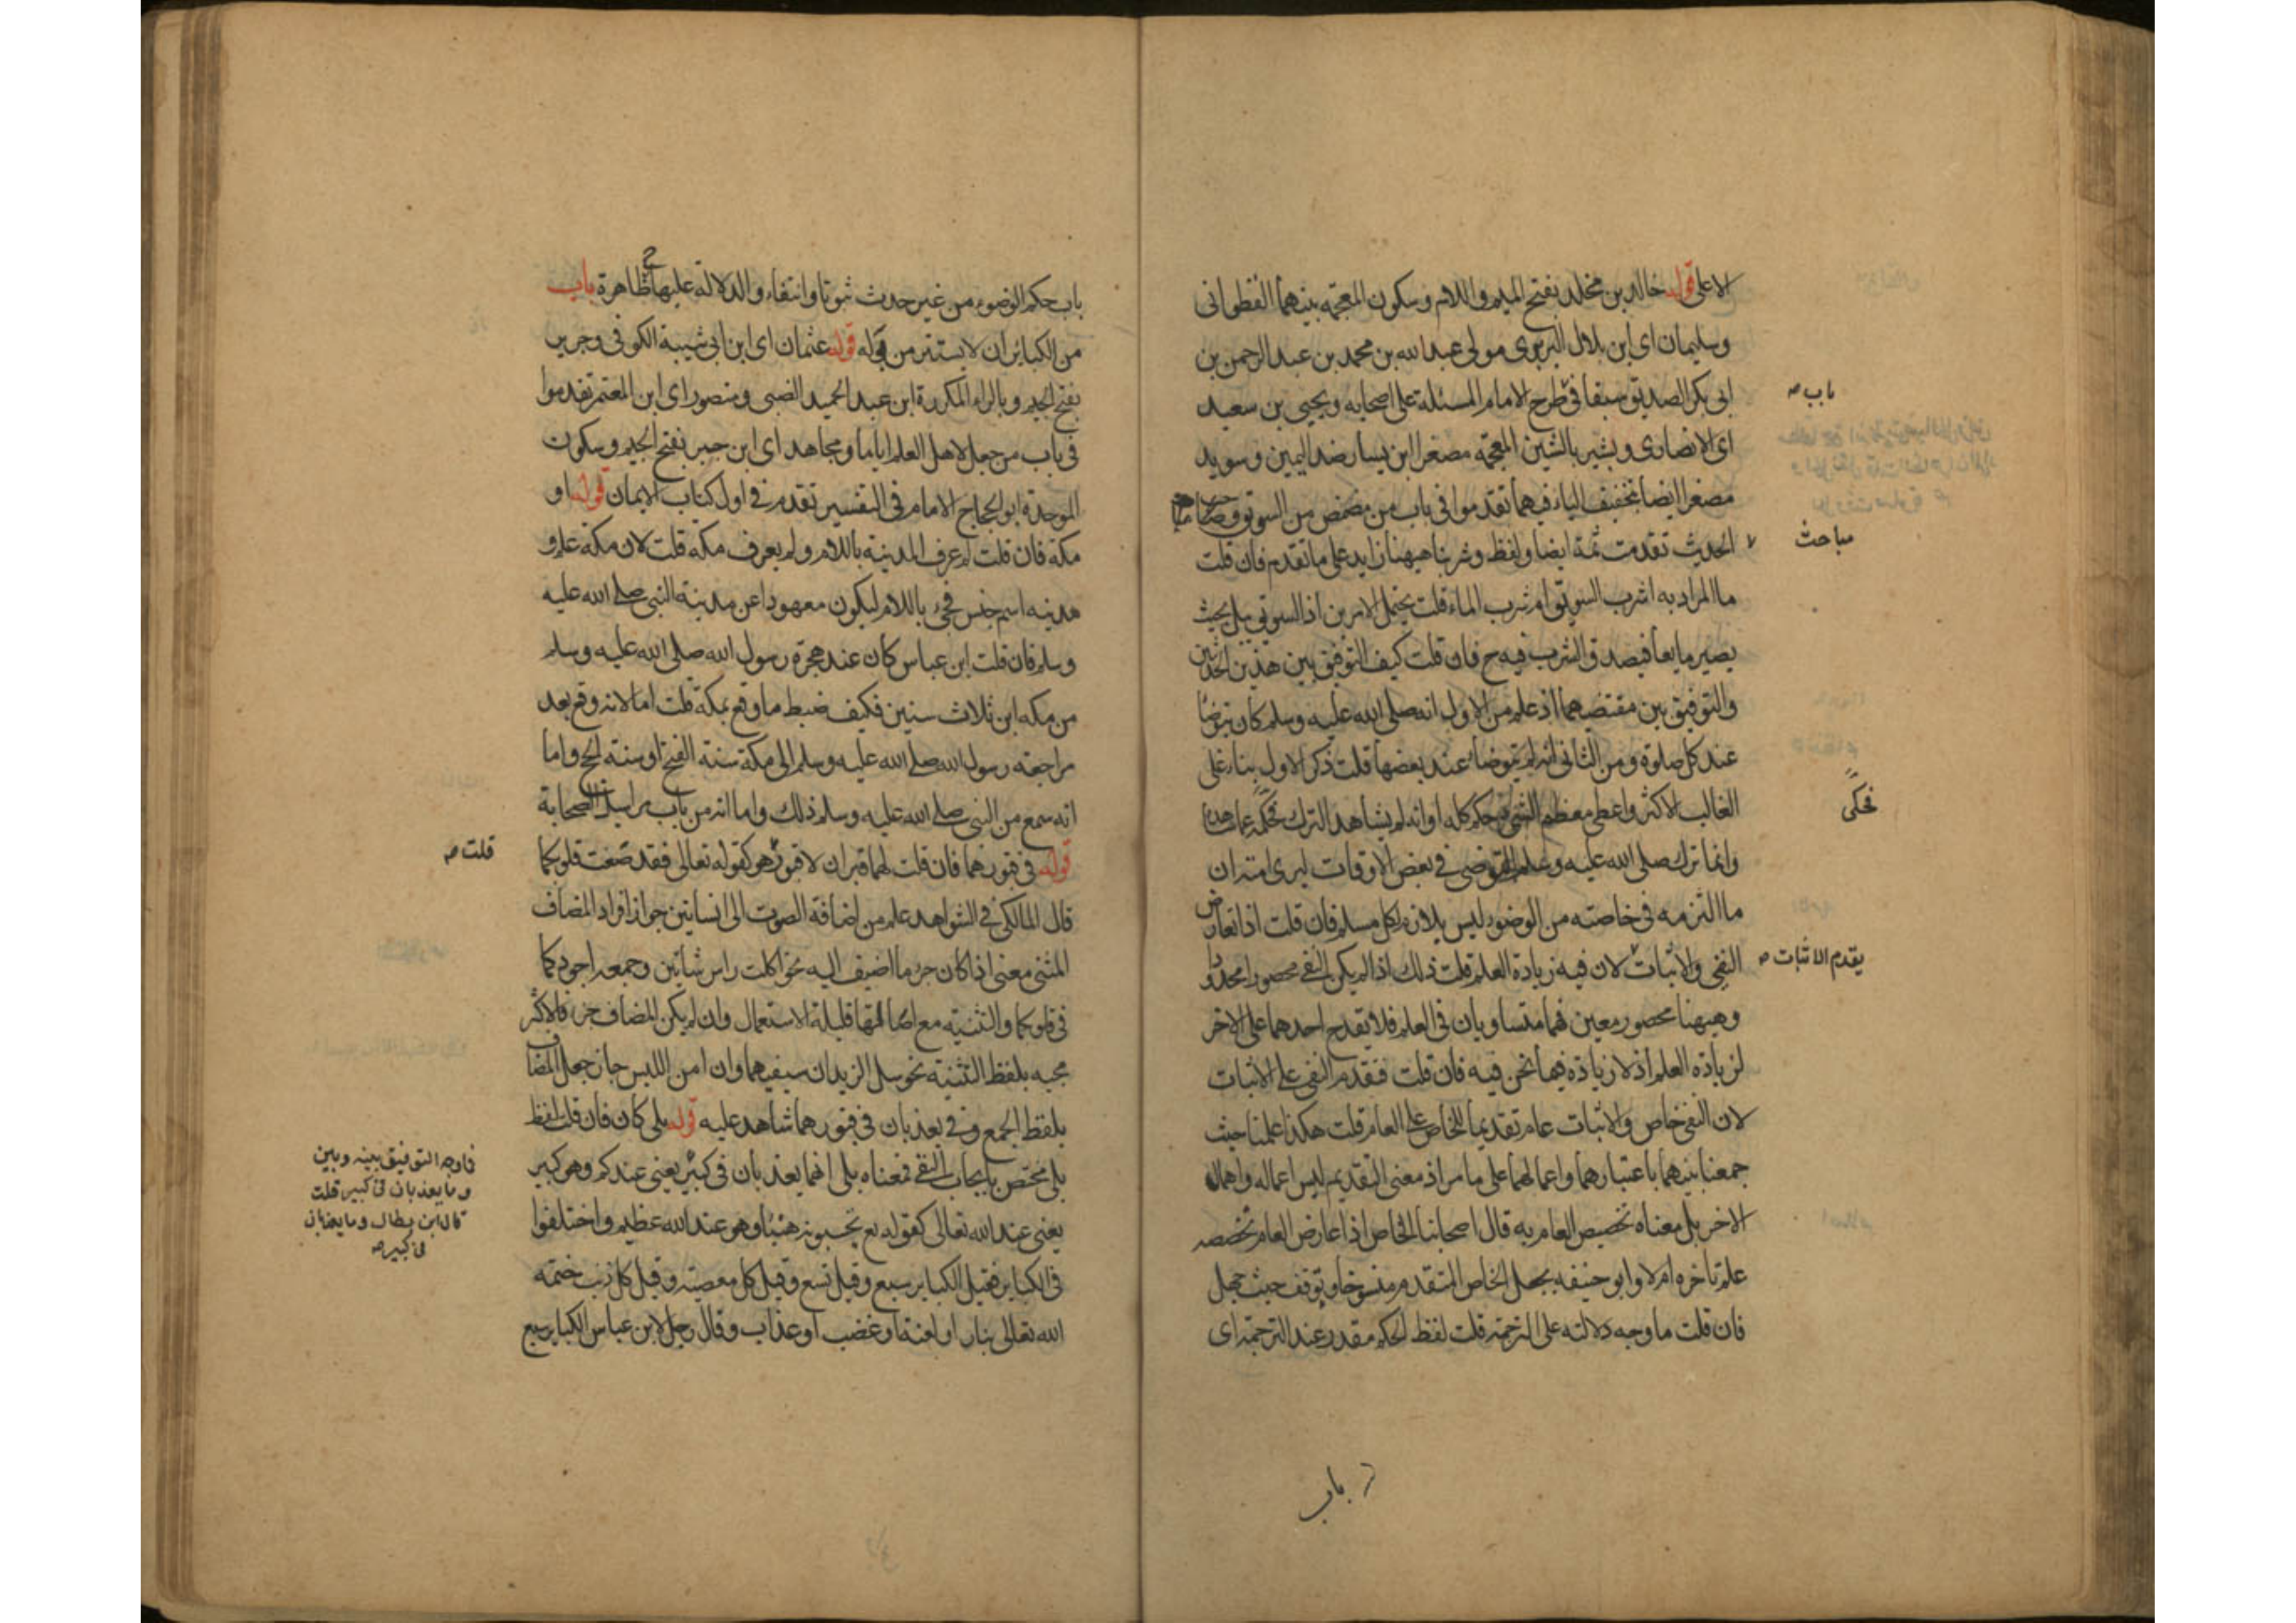 الاعلى قوله خالد بن مخلد بفتح الميم واللام وسكون المعجمة بينهما القطوانى
وسليمان اى ابن بلال البربرى مولى عبد الله بن محمد بن عبد الرحمن بن
ابى بكر الصديق سبقا فى طرح الامام المسئلة على اصحابه ويحيى بن سعيد
باب صه
اى الانصارى وبشير بالشين المعجمة مصغرا ابن يسار ضد اليمين وسويد
مصغرا ايضا بتخفيف الياء فيهما تقدموا فى باب من مضمض من السويق
الحديث تقدمت ثمة ايضا ولفظ وشربنا ههنا زايد على ما تقدم فان قلت
مباحث
ما المراد به اشرب السويق ام شرب الماء قلت يحتمل الامرين اذ السويق يبل بحيث
يصير مايعا فيصدق الشرب فيه ح فان قلت كيف التوفيق بين هذين الحديثين
والتوفيق بين مقتضيهما اذ علم من الاول انه صلى الله عليه وسلم كان يتوضأ
عند كل صلوة ومن الثانى انه لم يتوضا عند بعضها قلت ذكر الاول بناء على
الغالب الاكثر واعطى معظم الشئ حكم كله او انه لم يشاهد الترك
فحكى
وانما ترك صلى الله عليه وسلم التوضى فى بعض الاوقات ليرى امته ان
ما التزمه فى خاصته من الوضوء ليس بلازم لكل مسلم فان قلت اذا تعارض
النفى والاثبات لان فيه زيادة العلم قلت ذلك اذا لم يكن النفى محصورا محدودا
يقدم الاثبات صه
وههنا محصور معين فهما متساويان فى العلم فلا يقدح احدهما على الاخر
لزيادة العلم اذ لا زيادة فيما نحن فيه فان قلت فقدم النفى على الاثبات
لان النفى خاص والاثبات عام تقديما للخاص على العام قلت هكذا علمنا حيث
جمعنا بينهما باعتبارهما واعمالهما على ما مر اذ معنى التقديم ليس اعماله واهمال
الاخر بل معناه تخصيص العام به قال اصحابنا الخاص اذا عارض العام تخصصه
علم تأخره ام لا وابو حنيفه يجعل الخاص المتقدم منسوخا وتوقف حيث جهل
فان قلت ما وجه دلالته على الترجمة قلت لفظ الحكم مقدر عند الترجمة اى
باب
باب حكم الوضوء من غير حدث ثبوتا وانتفاء والدلالة عليها ح ظاهرة باب
من الكبائر ان لا يستتر من بوله قوله عثمان اى ابن ابى شيبة الكوفى وجرير
بفتح الجيم وبالراء المكررة ابن عبد الحميد الضبى ومنصور اى ابن المعتمر تقدموا
فى باب من جعل لاهل العلم اياما ومجاهد اى ابن جبر بفتح الجيم وسكون
الموحدة ابو الحجاج الامام فى التفسير تقدم فى اول كتاب الايمان قوله او
مكة فان قلت لم عرف المدينة باللام ولم يعرف مكة قلت لان مكة علم و
مدينه اسم جنس فجئ باللام ليكون معهودا عن مدينة النبى صلى الله عليه
وسلم فان قلت ابن عباس كان عند هجرة رسول الله صلى الله عليه وسلم
من مكه ابن ثلاث سنين فكيف ضبط ما وقع بمكة قلت اما لانه وقع بعد
مراجعة رسول الله صلى الله عليه وسلم الى مكة سنة الفتح او سنة الحج واما
انه سمع من النبى صلى الله عليه وسلم ذلك واما انه من باب مراسيل الصحابة
قوله فى قبورهما فان قلت لهما قبران لا قبور هو كقوله تعالى فقد صغت قلوبكما
قلت صه
قال المالكى فى الشواهد علم من اضافة الصوت الى انسانين جواز افراد المضاف
المثنى معنى اذا كان جزء ما اضيف اليه نحو اكلت راس شاتين وجمعه اجود كما
فى قلوبكما والتثنية مع اصالتها قليلة الاستعمال وان لم يكن المضاف جزء فالاكثر
مجيه بلفظ التثنية نحو سل الزيدان سيفيهما وان امن اللبس جاز جعل المضاف
بلفظ الجمع وفى يعذبان فى قبورهما شاهد عليه قوله بلى كان فان قلت لفظ
بلى مختص بايجاب النفى فمعناه بلى انهما يعذبان فى كبير يعنى عندكم وهو كبير
فاوجه التوفيق بينه وبين
وما يعذبان فى كبير قلت
قال ابن بطال وما يعذبان
فى كبير صه
يعنى عند الله تعالى كقوله تع تحسبونه هينا وهو عند الله عظيم واختلفوا
فى الكباير فقيل الكباير سبع وقيل تسع وقيل كل معصية وقيل كل ذنب ختمه
الله تعالى بنار او لعنة او غضب او عذاب وقال رجل لابن عباس الكباير سبع